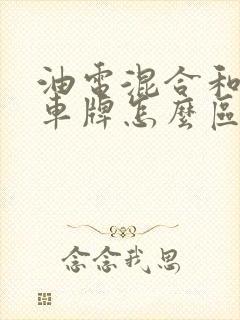 油電混合和
車牌怎麼區
念念我思